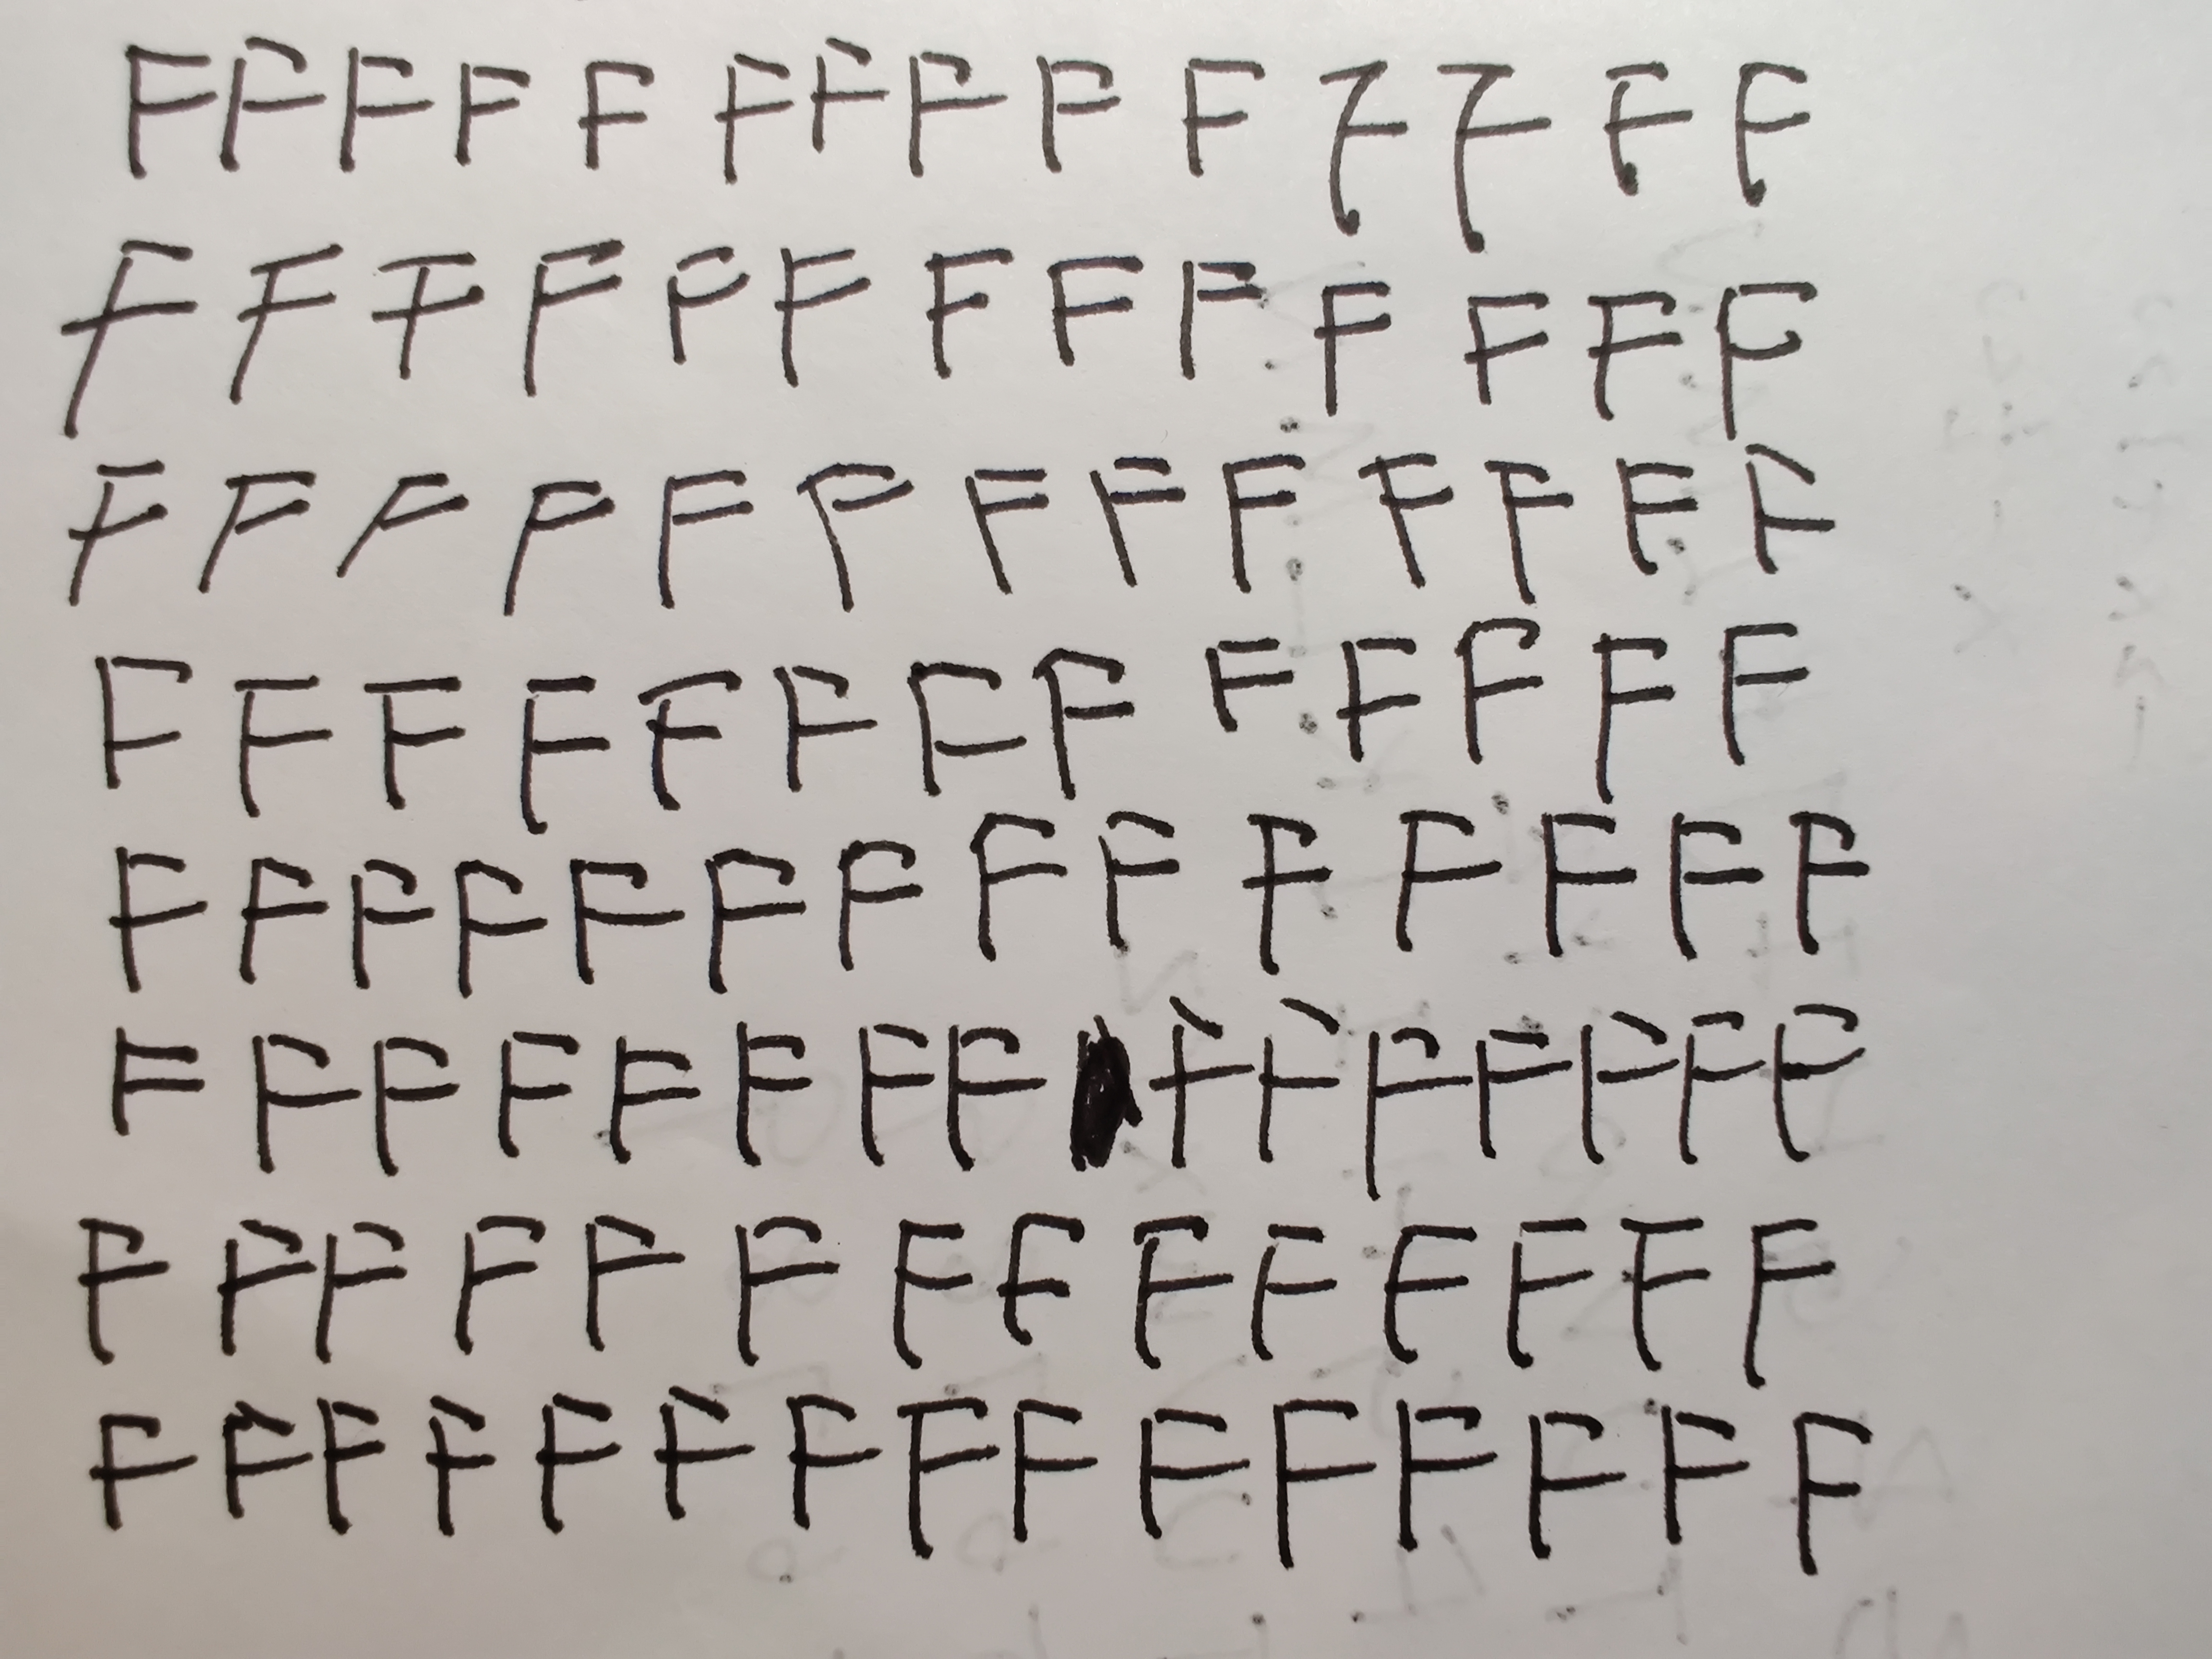 F F F F F F F F F F F F F F
F F F F F F F F F F F F F
F F F F F F F F F F F F F
F F F F F F F F F F F F F
F F F F F F F F F F F F F F
F F F F F F F F F F F F F F F
F F F F F F F F F F F F F F
F F F F F F F F F F F F F F F